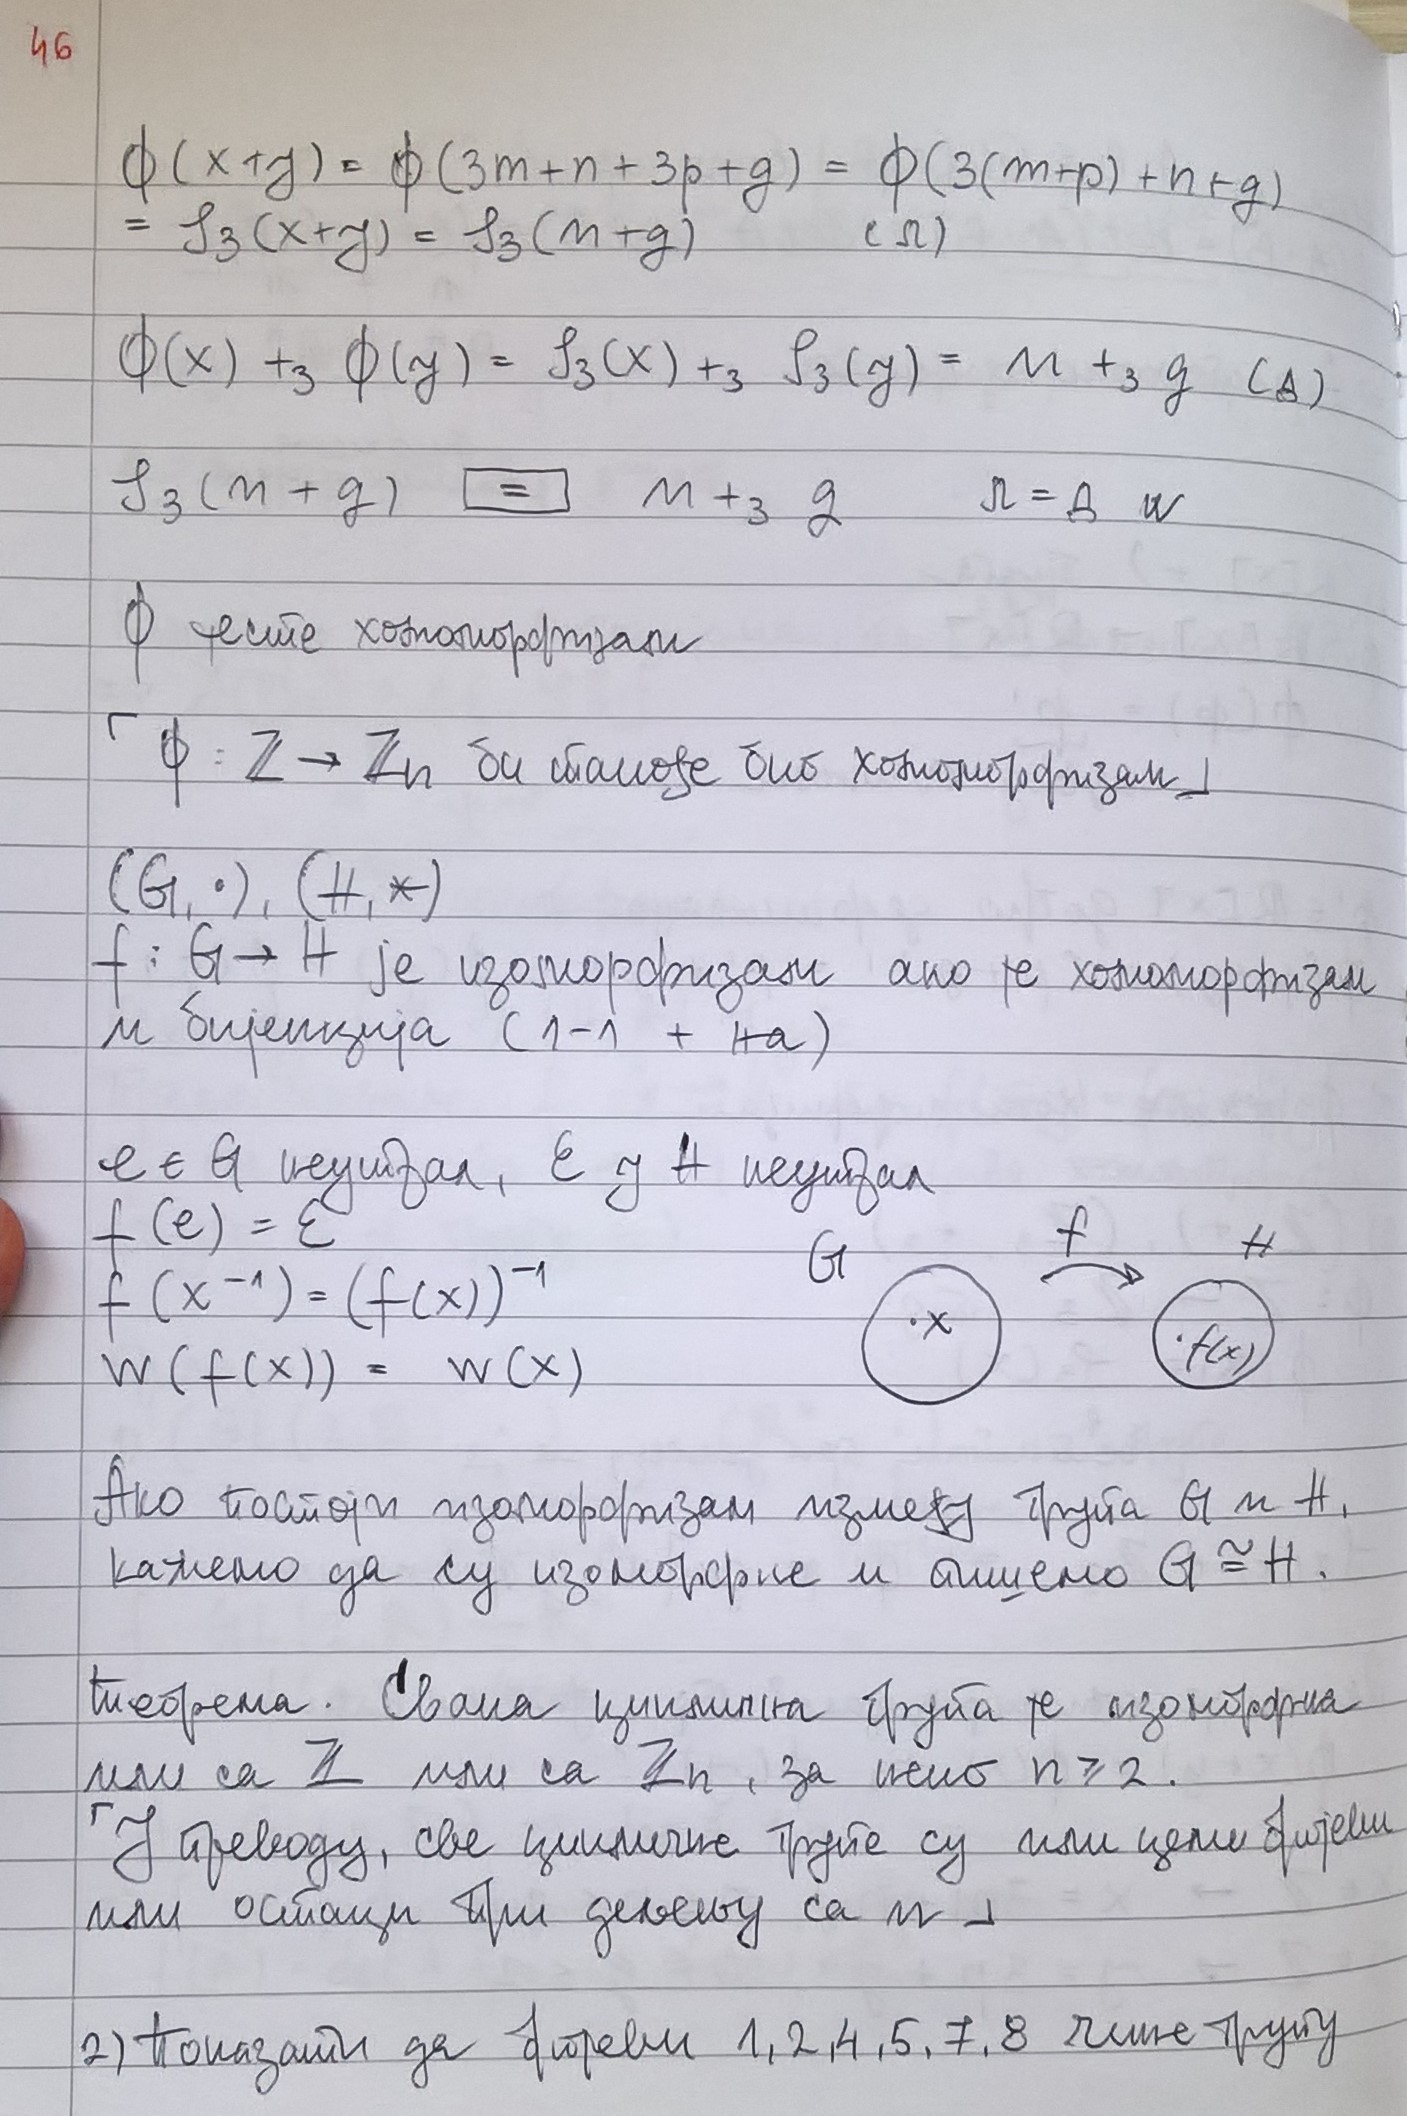 46
ϕ(x+y) = ϕ(3m+n+3p+g) = ϕ(3(m+p)+n+g)
= ρ₃(x+y) = ρ₃(n+g) (Л)
ϕ(x) +₃ ϕ(y) = ρ₃(x) +₃ ρ₃(y) = n +₃ g (Д)
ρ₃(n+g) = n +₃ g Л = Д
ϕ јесте хомоморфизам
⌜ϕ : ℤ → ℤn би такође био хомоморфизам⌟
(G, ·), (H, *)
f : G → H је изоморфизам ако је хомоморфизам
и бијекција (1-1 + на)
e ∈ G неутрал, ε у H неутрал
f(e) = ε
f(x⁻¹) = (f(x))⁻¹
w(f(x)) = w(x)
G f H
·x ·f(x)
Ако постоји изоморфизам између група G и H,
кажемо да су изоморфне и пишемо G ≅ H.
Теорема. Свака циклична група је изоморфна
или са ℤ или са ℤn, за неко n ⩾ 2.
⌜У преводу, све цикличне групе су или цели бројеви
или остаци при дељењу са n⌟
2) Показати да бројеви 1, 2, 4, 5, 7, 8 чине групу